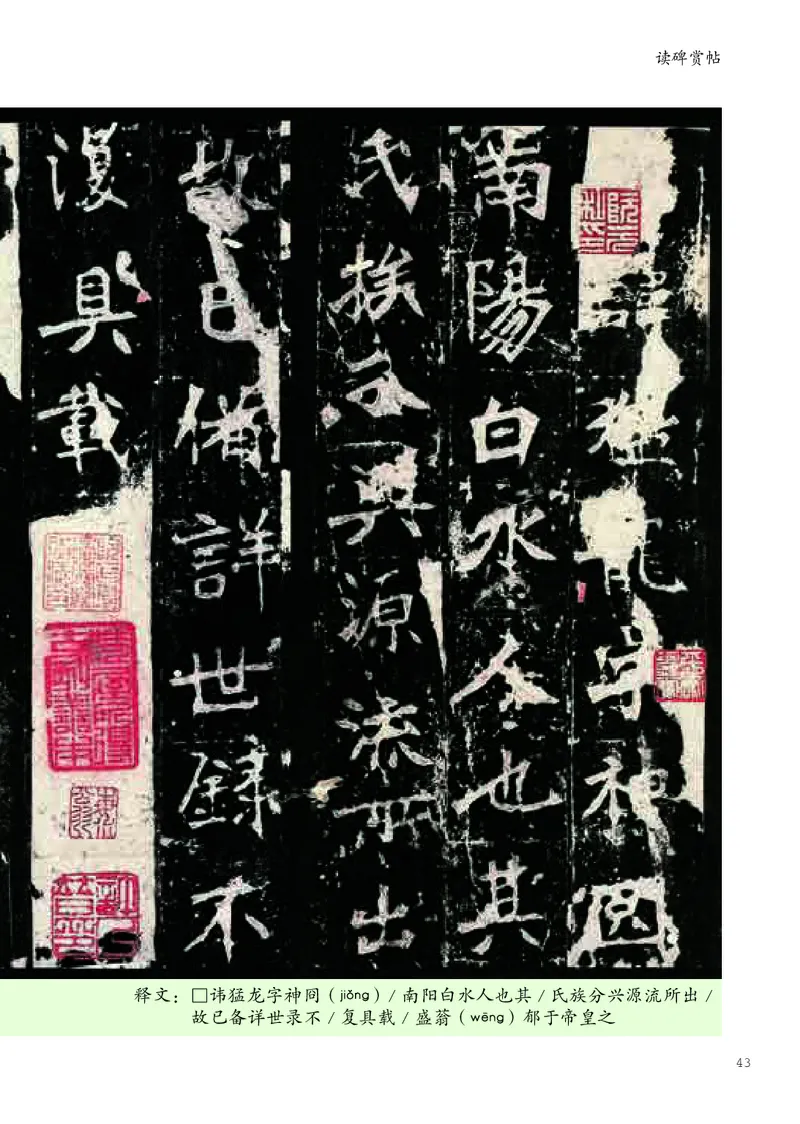 读碑赏帖
諱猛龍字神冏
南陽白水人也其
氏族分興源流所出
故已備詳世錄不
復具載
释文：□讳猛龙字神冏（jiǒng）/ 南阳白水人也其 / 氏族分兴源流所出 /
故已备详世录不 / 复具载 / 盛蓊（wēng）郁于帝皇之
43